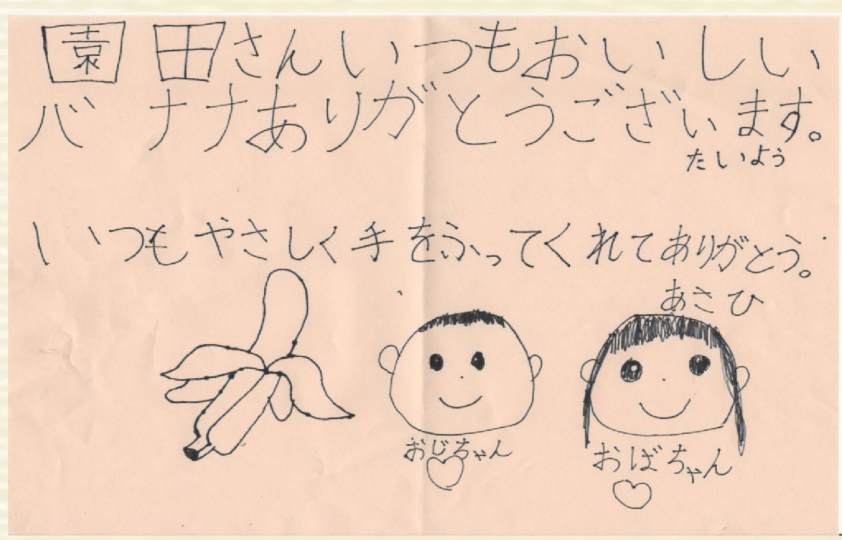 園田さんいつもおいしい
バナナありがとうございます。
たいよう
いつもやさしく手をふってくれてありがとう。
あさひ
おじちゃん
おばちゃん